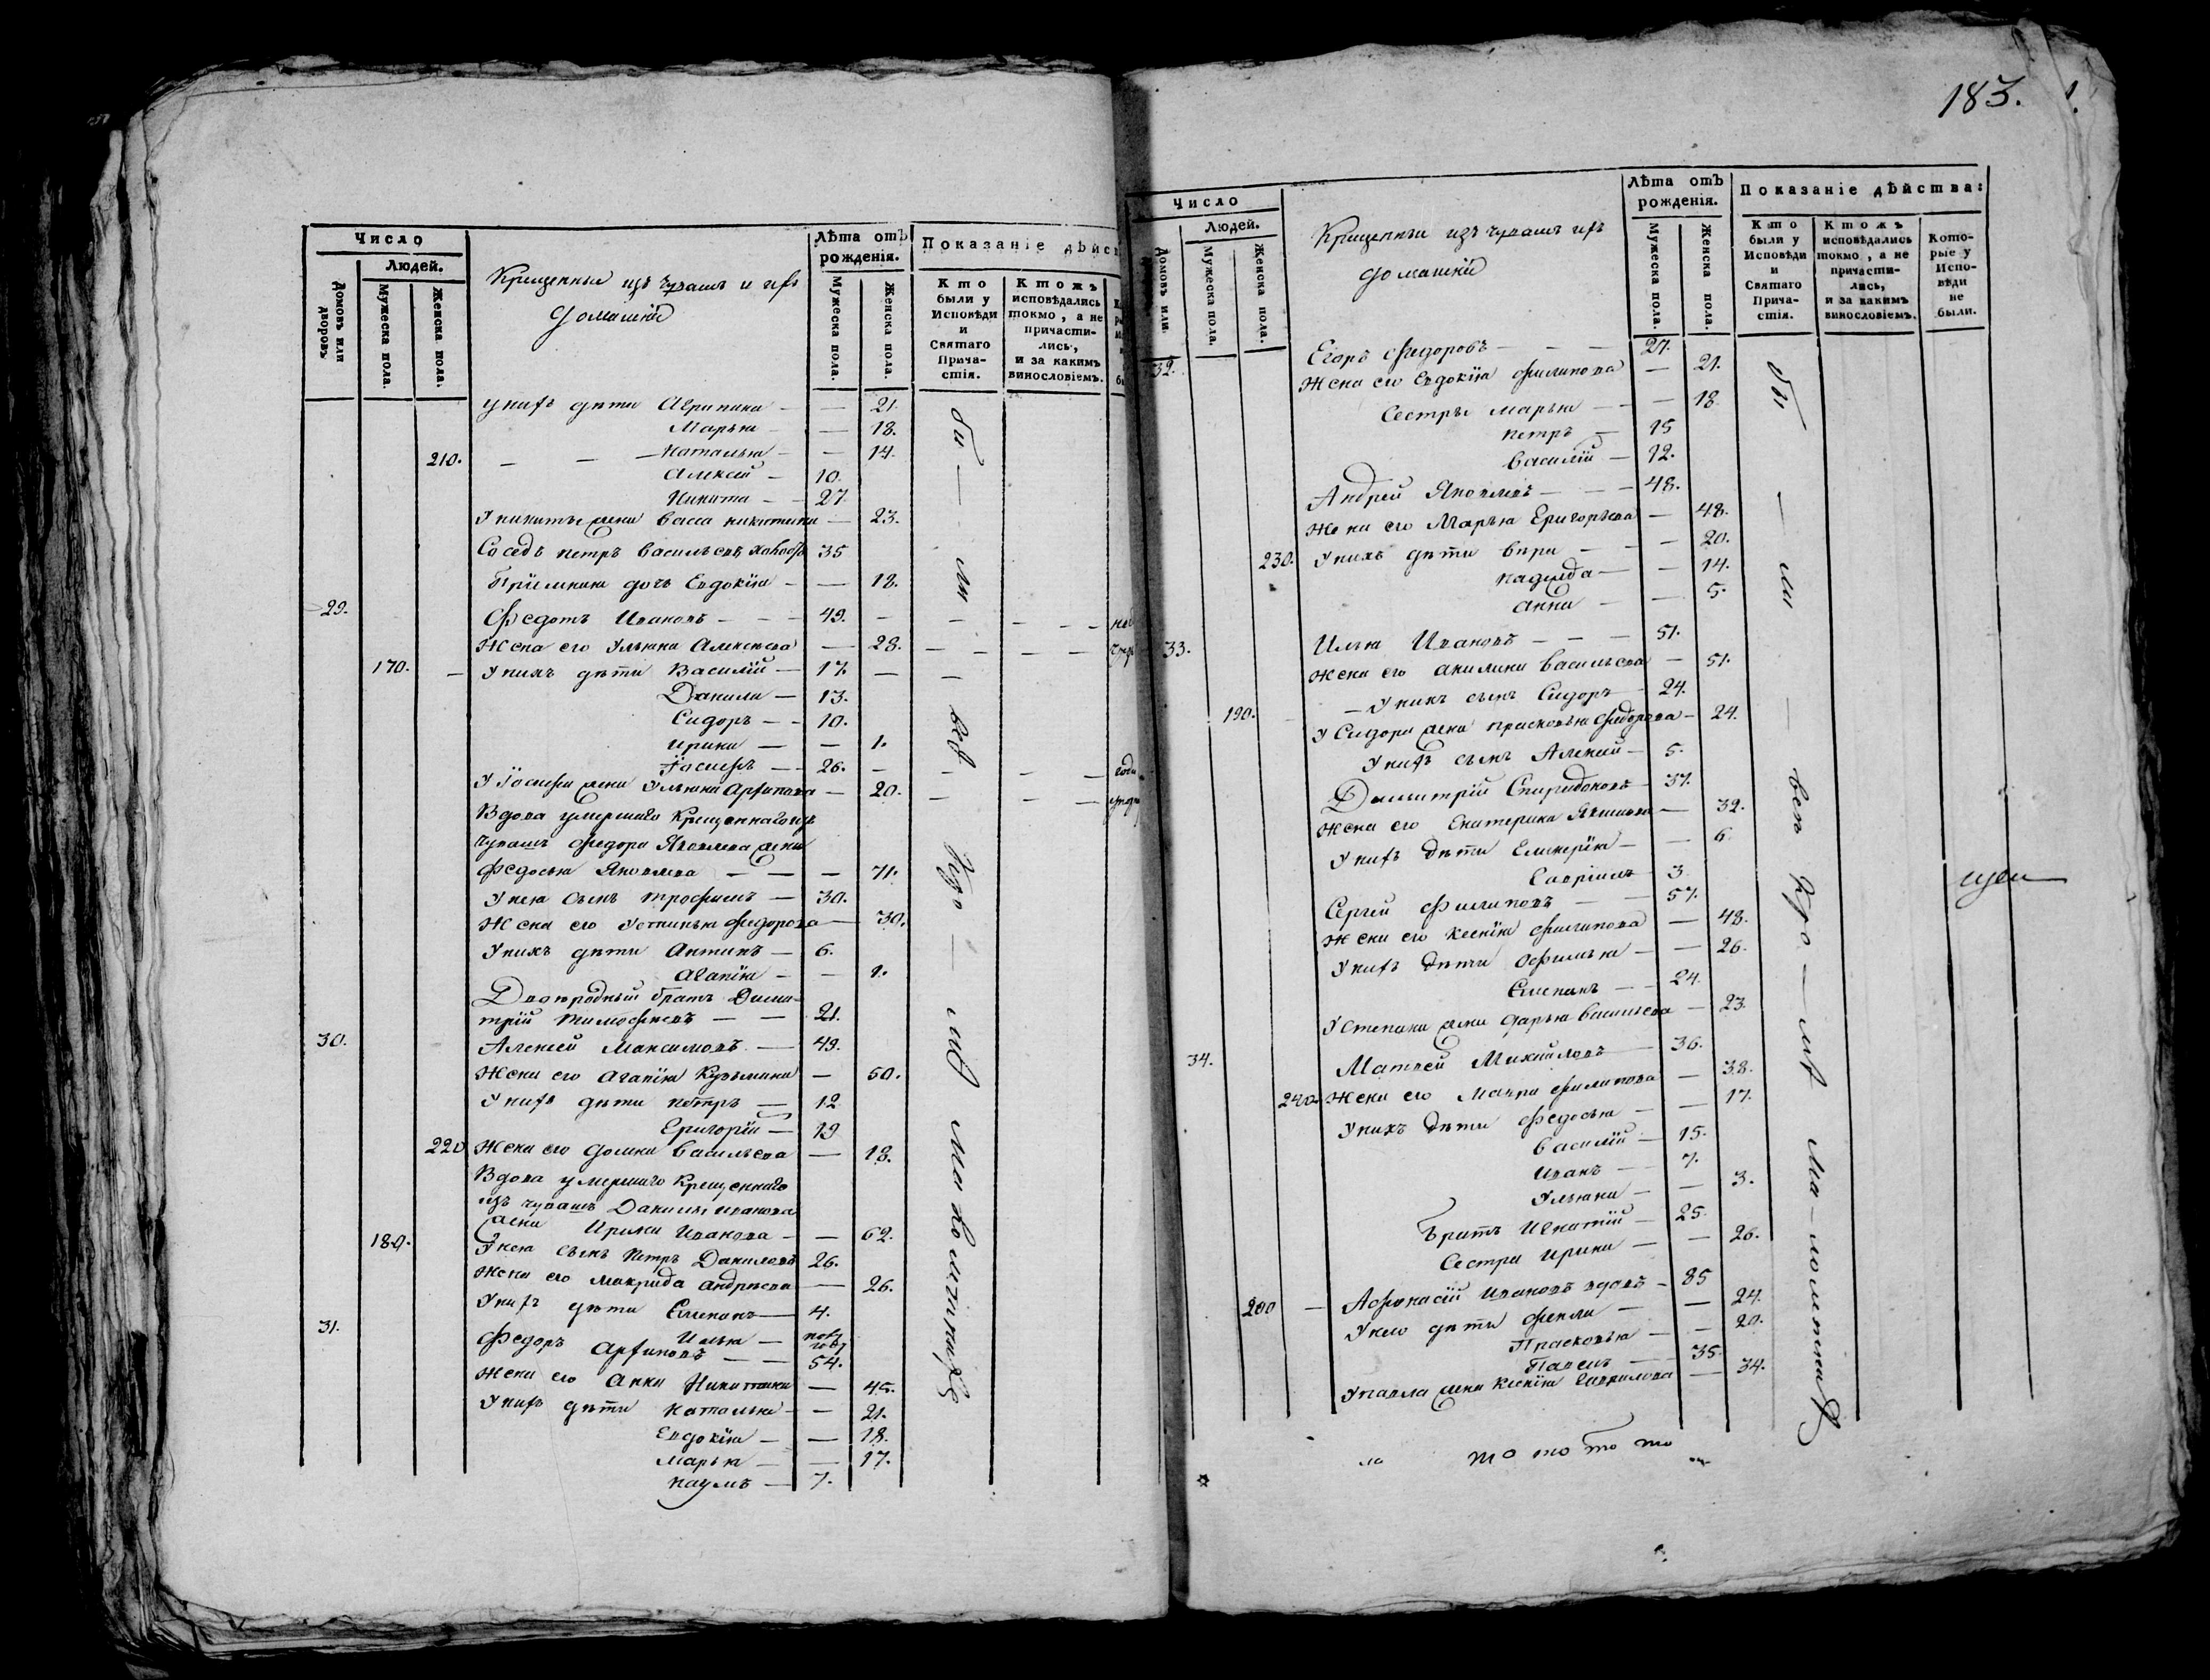 183.
Число
Людей.
Домовъ или дворовъ.
Мужеска пола.
Женска пола.
Крещенныи изъ чувашъ и ихъ
домашніи
Лѣта отъ рожденія.
Мужеска пола.
Женска пола.
Показаніе дѣйст
Кто были у Исповѣди и Святаго Прича-стія.
Ктожъ исповѣдались токмо, а не причасти-лись, и за какимъ винословіемъ.
у нихъ дѣти Агрипина — — 21.
Марья — — 18.
210. — — — Наталья — — 14.
Алексѣй — 10.
Никита — — 27.
У никиты жена васса никитина — 23.
Соседъ петръ васильевъ 35
Пріемная дочь Евдокія — — 18.
29. Федотъ Ивановъ — — — 49. — — — —
Жена его Ульяна Алексѣева — 28. — — — —
170. — У нихъ дѣти Василій — 17. — —
Данила — 13.
Сидоръ — — 10.
ирина — — 1.
Іосифъ — — 26. — — — —
У Іосифа жена Ульяна Архипова — 20. — — —
Вдова умершаго Крещеннаго изъ
чувашъ Федора Яковлева жена
Федосья Яковлева — — — 71.
У нея сынъ трофимъ — 30.
Жена его Устинья Федорова — 30.
У нихъ дѣти Антипъ — 6.
Агапія — — 1.
Двоюродный братъ Дими-
трій тимофеевъ — — 21.
30. Алексей Максимовъ — 49.
Жена его Агапія Кузьмина — 50.
У нихъ дѣти петръ — 12
Григорій — 19
220 Жена его домна васильева — 18.
Вдова умершаго Крещеннаго
изъ чувашъ Данилы иванова
жена Ирина Иванова — — 62.
180. У нея сынъ Петръ Даниловъ 26.
Жена его макрида андрѣева — 26.
У нихъ дѣти Степанъ — 4.
Илья —
31. Федоръ Архиповъ — — 54.
Жена его Анна Никитина — 45.
У нихъ дѣти наталья — — 21.
Евдокія — — 18.
марья — — 17.
наумъ — 7.
Число
Людей.
Домовъ или
Мужеска пола.
Женска пола.
Крещенныи изъ чувашъ ихъ
домашніи
Лѣта отъ рожденія.
Мужеска пола.
Женска пола.
Показаніе дѣйства:
Кто были у Исповѣди и Святаго Прича-стія.
Ктожъ исповѣдались токмо, а не причасти-лись, и за какимъ винословіемъ.
Кото-рые у Испо-вѣди не были.
32. Егоръ Федоровъ — — — 27.
Жена его Евдокія филипова — 21.
Сестры марья — — — 18.
петръ — 15
василій — 12.
Андрей Яковлевъ — — — 48.
Жена его Марья Григорьева — 48.
230. У нихъ дѣти вѣра — — — 20.
надежда — — 14.
анна — — 5.
33. Илья Ивановъ — — — 51.
Жена его акилина васильева — 51.
190. — У нихъ сынъ Сидоръ — 24.
У Сидора жена прасковья Федорова — 24.
У нихъ сынъ Алексѣй — 5.
Димитрій Спиридоновъ — 37.
Жена его Екатерина — 32.
У нихъ дѣти Гликерія — — 6.
Гавріилъ — 3
Сергей Филиповъ — — 57.
Жена его ксенія филипова — 48.
У нихъ дѣти — — 26.
Степанъ — — 24.
У степана жена дарья васильева — 23.
34. Матвей Михайловъ — 36.
240. Жена его Мавра филипова — 38.
У нихъ дѣти федосья — — 17.
василій — 15.
иванъ — — 7.
Ульяна — — 3.
братъ Игнатій — 25.
Сестра ирина — — 26.
200 — Афонасій ивановъ вдовъ — 85
У него дѣти фекла — — 24.
Прасковья — — 20.
Павелъ — — 35.
У павла жена ксенія гаврилова — 34.
то то то то